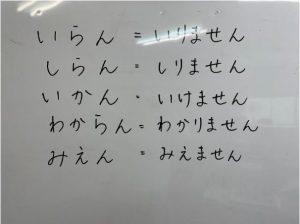 いらん = いりません
しらん = しりません
いかん = いけません
わからん = わかりません
みえん = みえません